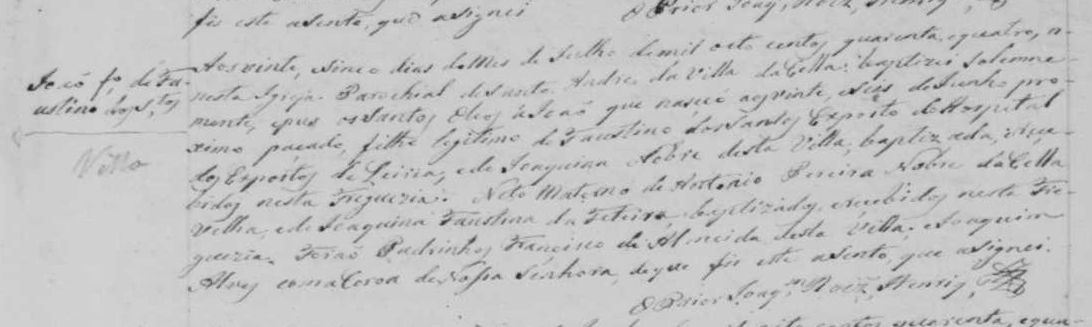 fis este asento, que asignei O Prior Joaq.
João fo. de Fa-
ustino dos Stos
Villa
Aos vinte, sinco dias do Mes de Julho de mil oito centos quarenta, equatro, n-
nesta Igreja Parochial de Santo André da Villa da Cella: baptizei solemne-
mente, epus os Santos Oleos a João que nasceo aos vinte, eseis de Junho pro-
ximo pacado, filho legitimo de Faustino dos Santos Exposto do Hospital
dos Expostos de Leiria, ede Joaquina Nobre desta Villa, baptizada, erece-
bidos nesta Freguezia. Neto Materno de Antonio Pereira Nobre da Cella
Velha, ede Joaquina Faustina da Feteira, baptizados, erecebidos nesta Fre-
guezia. Forão Padrinhos Francisco de Almeida desta Villa, eJoaquim
Alves coma Coroa de Nossa Senhora, deque fis este asento, que asignei.
O Prior Joaqm. Roiz, Henriq,
oito centos quarenta, equa-